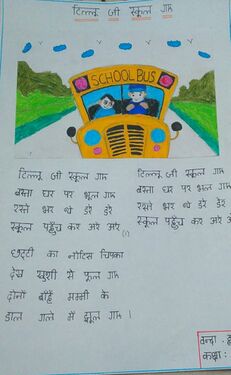 टिल्लू जी स्कूल गए
SCHOOL BUS
टिल्लू जी स्कूल गए
बस्ता घर पर भूल गए
रस्ते भर थे डरे डरे
स्कूल पहुँच कर अरे अरे
(1)
छुट्टी का नोटिस चिपका
देख खुशी से फूल गए
दोनों बाँहें मम्मी के
डाल गले में झूल गए ।
टिल्लू जी स्कूल गए
बस्ता घर पर भूल गए
रस्ते भर थे डरे डरे
स्कूल पहुँच कर अरे अरे
कक्षा :